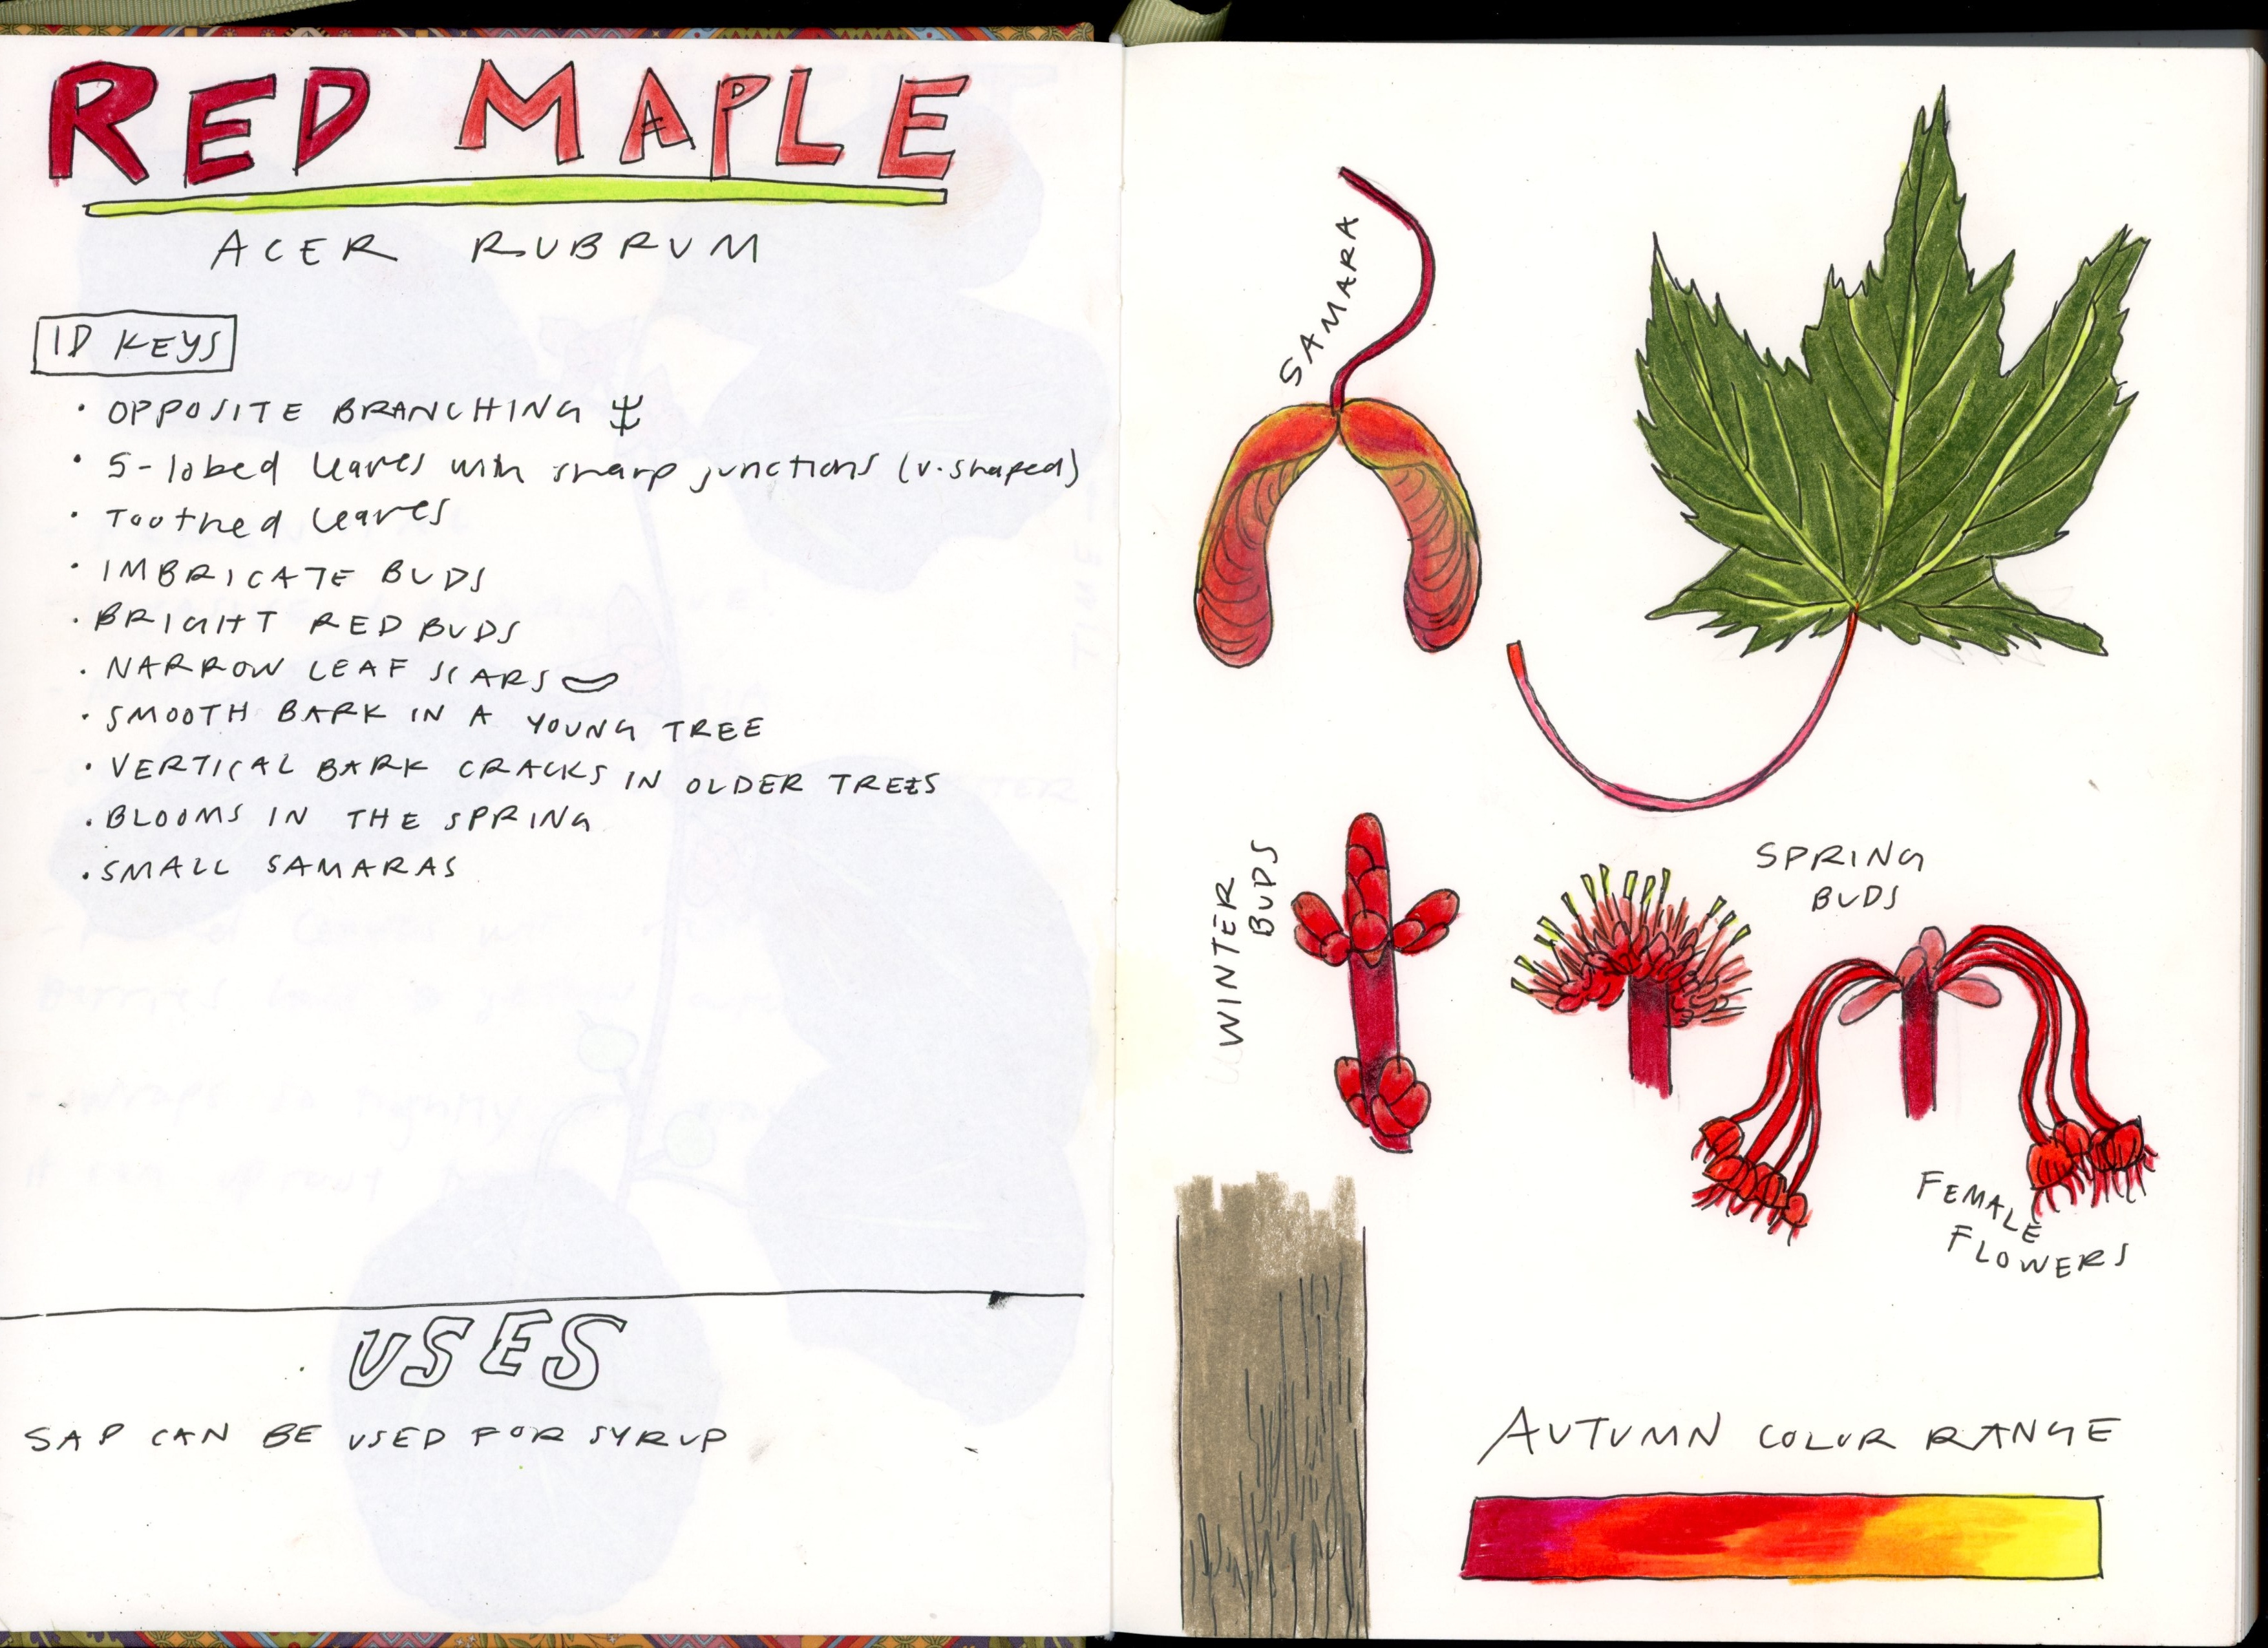 RED MAPLE
ACER RUBRUM
ID KEYS
· OPPOSITE BRANCHING
· 5-lobed leaves with sharp junctions (v-shaped)
· Toothed leaves
· IMBRICATE BUDS
· BRIGHT RED BUDS
· NARROW LEAF SCARS
· SMOOTH BARK IN A YOUNG TREE
· VERTICAL BARK CRACKS IN OLDER TREES
· BLOOMS IN THE SPRING
· SMALL SAMARAS
USES
SAP CAN BE USED FOR SYRUP
SAMARA
WINTER
BUDS
SPRING
BUDS
FEMALE
FLOWERS
AUTUMN COLOR RANGE